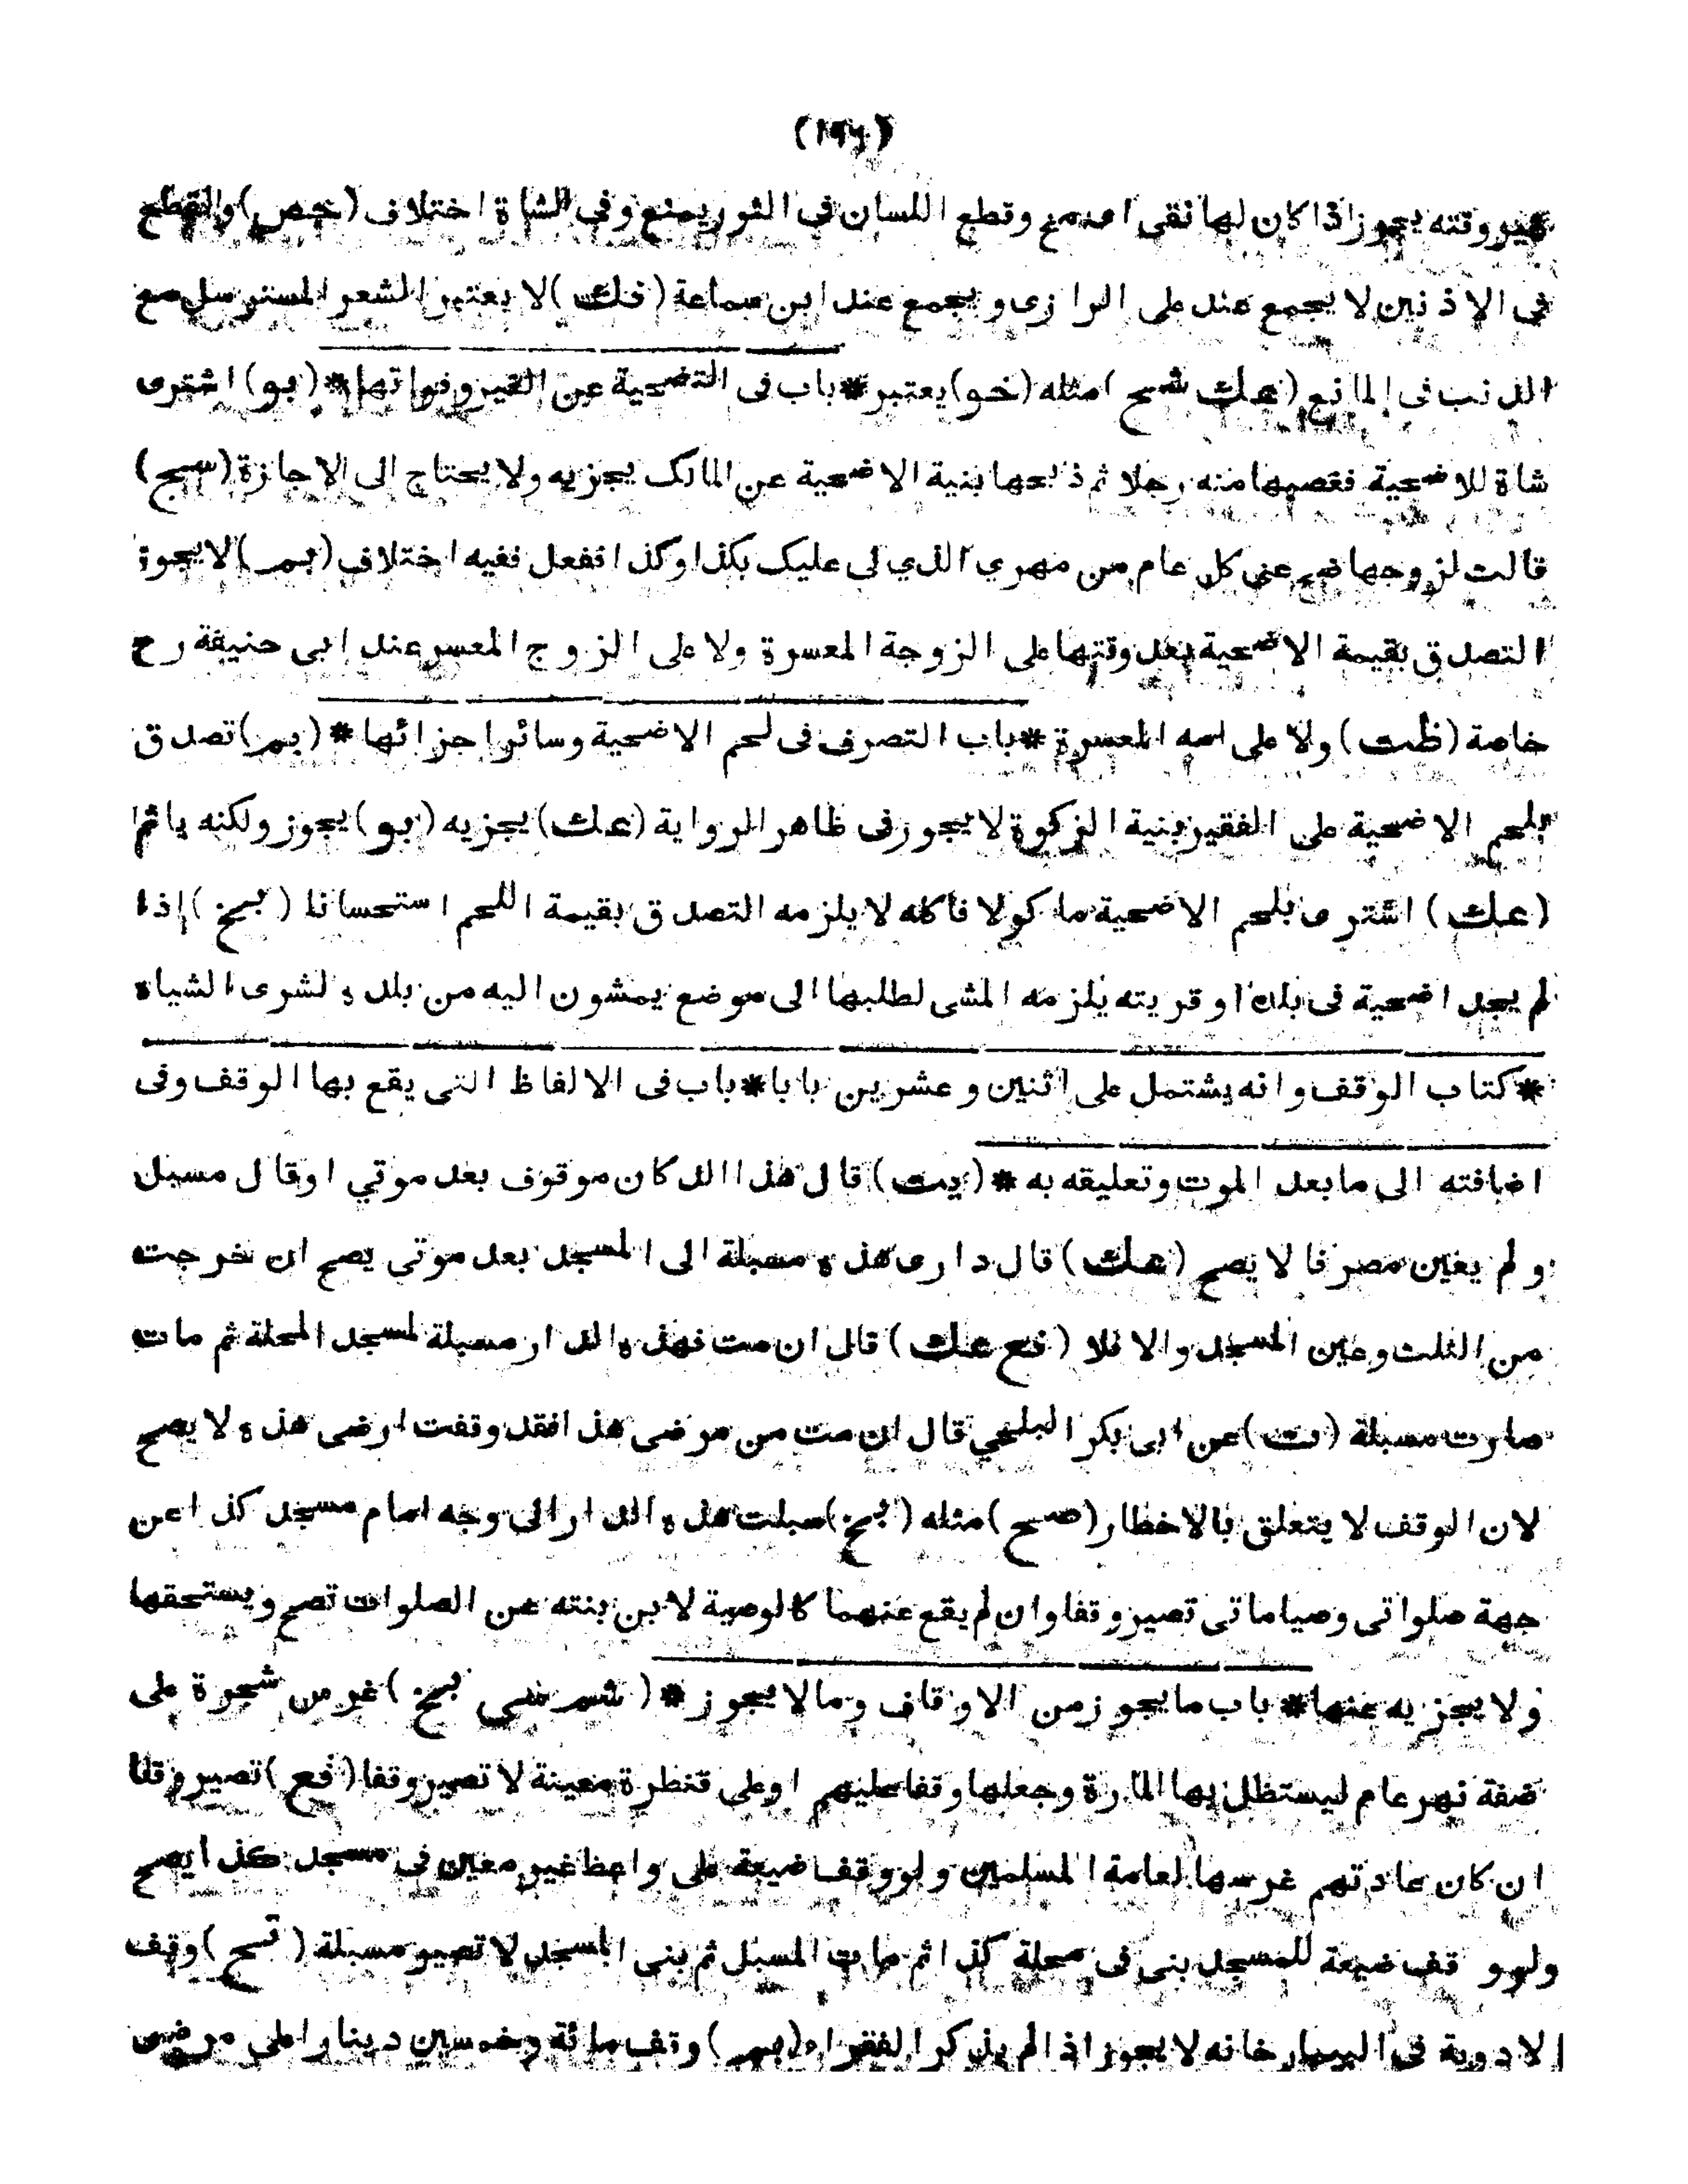 غير وقته يجوز اذا كان لها نقى وقطع اللسان فى الثور يمنع وفى الشاة اختلاف (خص) والقطع
فى الاذنين لا يجمع عند على الرازى و يجمع عند ابن سماعة (فك) لا يعتبر الشعر المسترسل مع
الذنب فى المانع (عك شح) مثله (خو) يعتبر * باب فى التضحية عن الغير وفواتها * (بو) اشترى
شاة للاضحية فغصبها منه رجلا ثم ذبحها بنية الاضحية عن المالك يجزيه ولا يحتاج الى الاجازة (سبج)
قالت لزوجها ضح عنى كل عام من مهري الذي لى عليك بكذا وكذا ففعل ففيه اختلاف (بم) لا يجوز
التصدق بقيمة الاضحية بعد وقتها على الزوجة المعسرة ولا على الزوج المعسر عند ابى حنيفة رح
خاصة (ظت) ولا على امه المعسرة * باب التصرف فى لحم الاضحية وسائر اجزائها * (بم) تصدق
بلحم الاضحية على الفقير بنية الزكوة لا يجوز فى ظاهر الرواية (عك) يجزيه (بو) يجوز ولكنه ياثم
(عك) اشترى بلحم الاضحية ماكولا فاكله لا يلزمه التصدق بقيمة اللحم استحسانا (بخ) إذا
لم يجد اضحية فى بلده او قريته يلزمه المشى لطلبها الى موضع يمشون اليه من بلده لشرى الشياه
* كتاب الوقف وانه يشتمل على اثنين وعشرين بابا * باب فى الالفاظ التى يقع بها الوقف وفى
اضافته الى ما بعد الموت وتعليقه به * (يت) قال هذا الدكان موقوف بعد موتي او قال مسبل
ولم يعين مصرفا لا يصح (عك) قال دارى هذه مسبلة الى المسجد بعد موتى يصح ان خرجت
من الثلث وعين المسجد والا فلا (فع عك) قال ان مت فهذه الدار مسبلة لمسجد المحلة ثم مات
صارت مسبلة (ت) عن ابى بكر البلخي قال ان مت من مرضى هذا فقد وقفت ارضى هذه لا يصح
لان الوقف لا يتعلق بالاخطار (صح) مثله (بخ) سبلت هذه الدار الى وجه امام مسجد كذا عن
جهة صلواتى وصياماتى تصير وقفا وان لم يقع عنهما كالوصية لابن بنته عن الصلوات تصح ويستحقها
ولا يجزيه عنها * باب ما يجوز من الاوقاف وما لا يجوز * (شم شى بخ) غرس شجرة على
ضفة نهر عام ليستظل بها المارة وجعلها وقفا عليهم او على قنطرة معينة لا تصير وقفا (فع) تصير وقفا
ان كان عادتهم غرسها لعامة المسلمين ولو وقف ضيعة على واعظ غير معين فى مسجد كذا يصح
ولو وقف ضيعة للمسجد بنى فى محلة كذا ثم مات المسبل ثم بنى المسجد لا تصير مسبلة (قسح) وقف
الادوية فى البيمارخانه لا يجوز اذا لم يذكر الفقراء (بم) وقف مائة وخمسين دينارا على مرضى